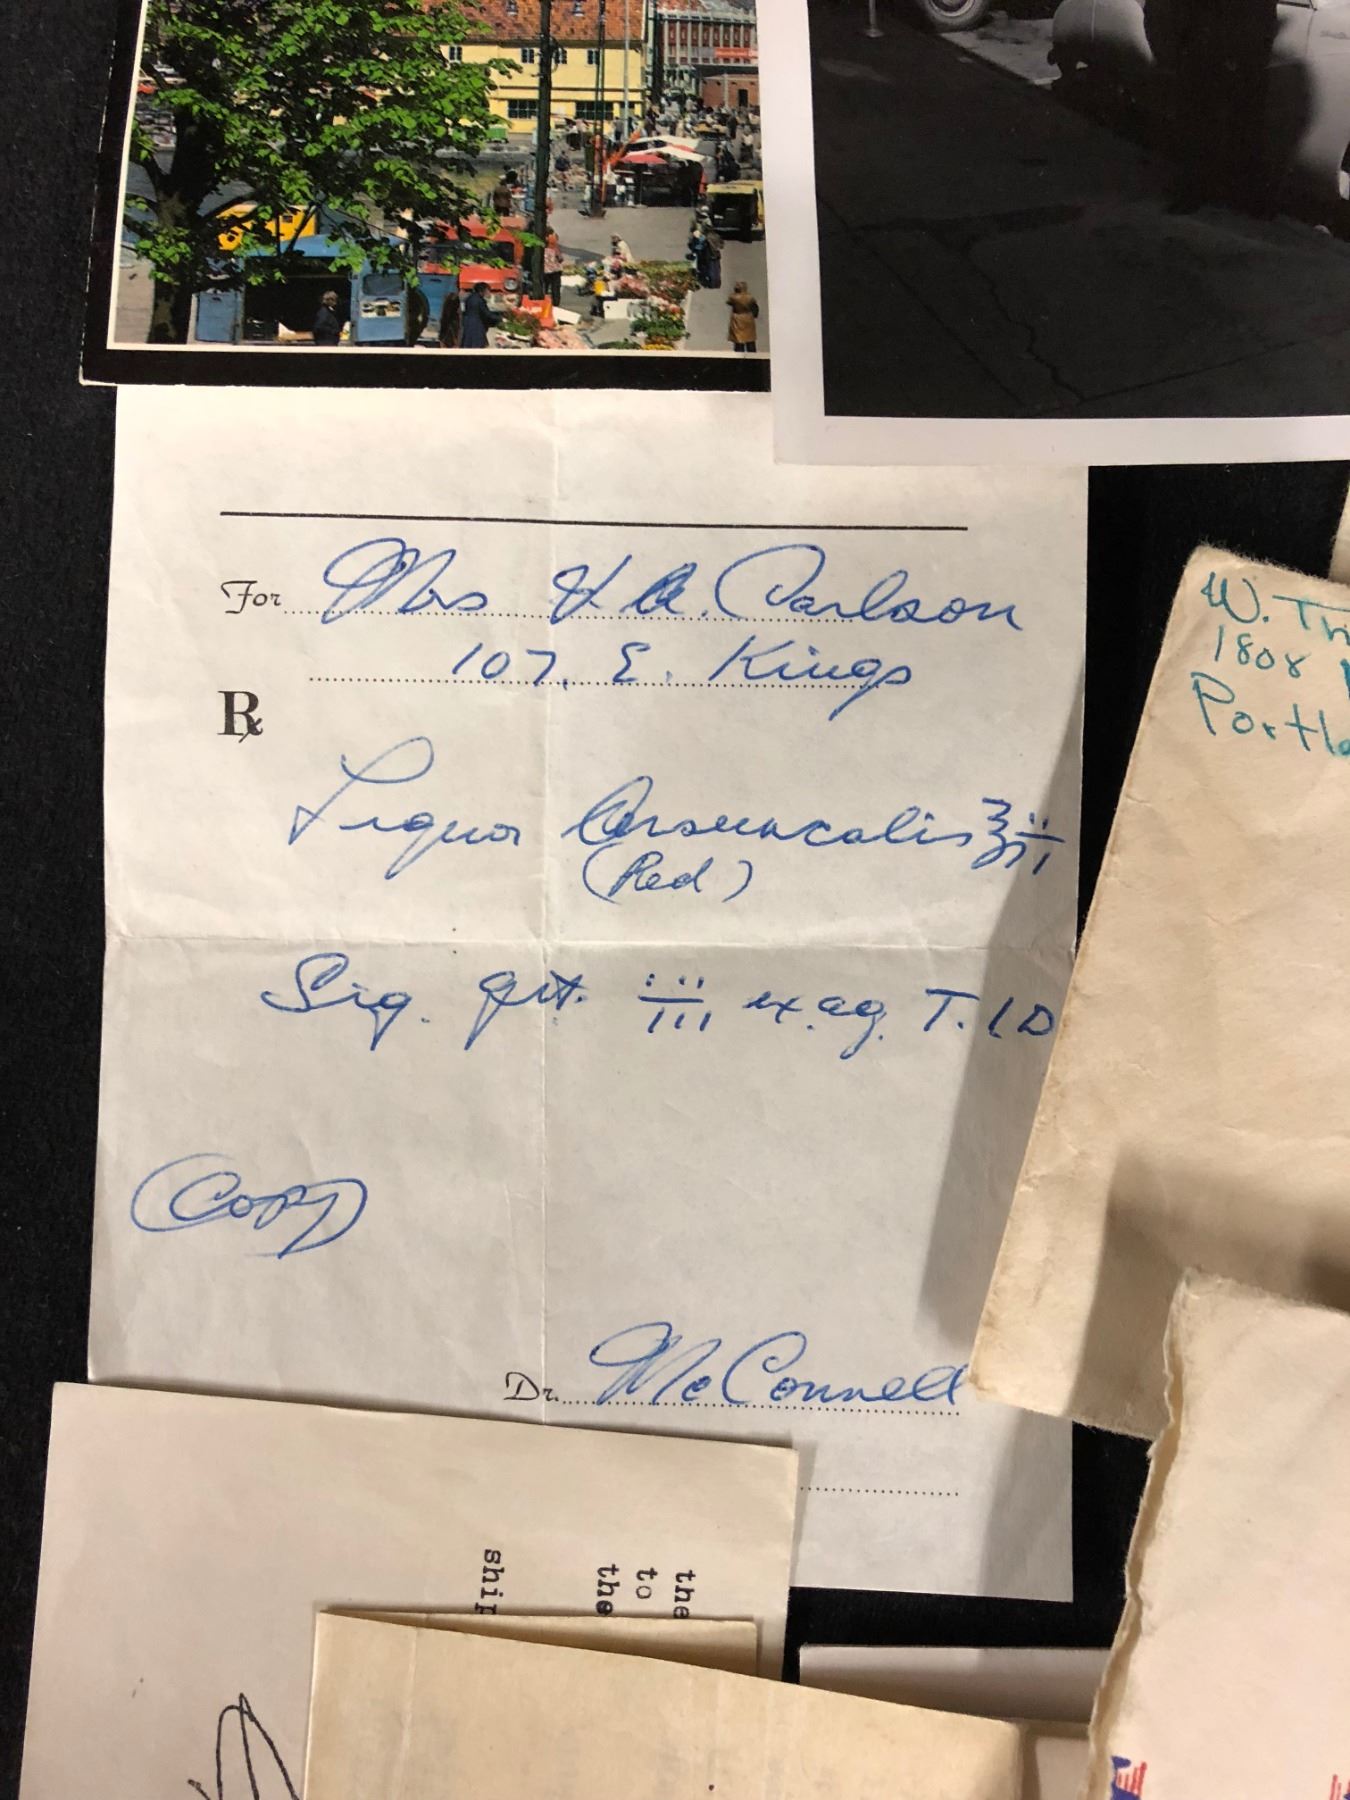 For Mrs H. A. Carlson
107, E. Kings
℞
Liquor Arsenicalis ℥ii
(Red)
Sig. gtt. iii ex. aq. T.I.D
Copy
Dr. McConnell
W. Th
1808
Portla
the
to
the
ship